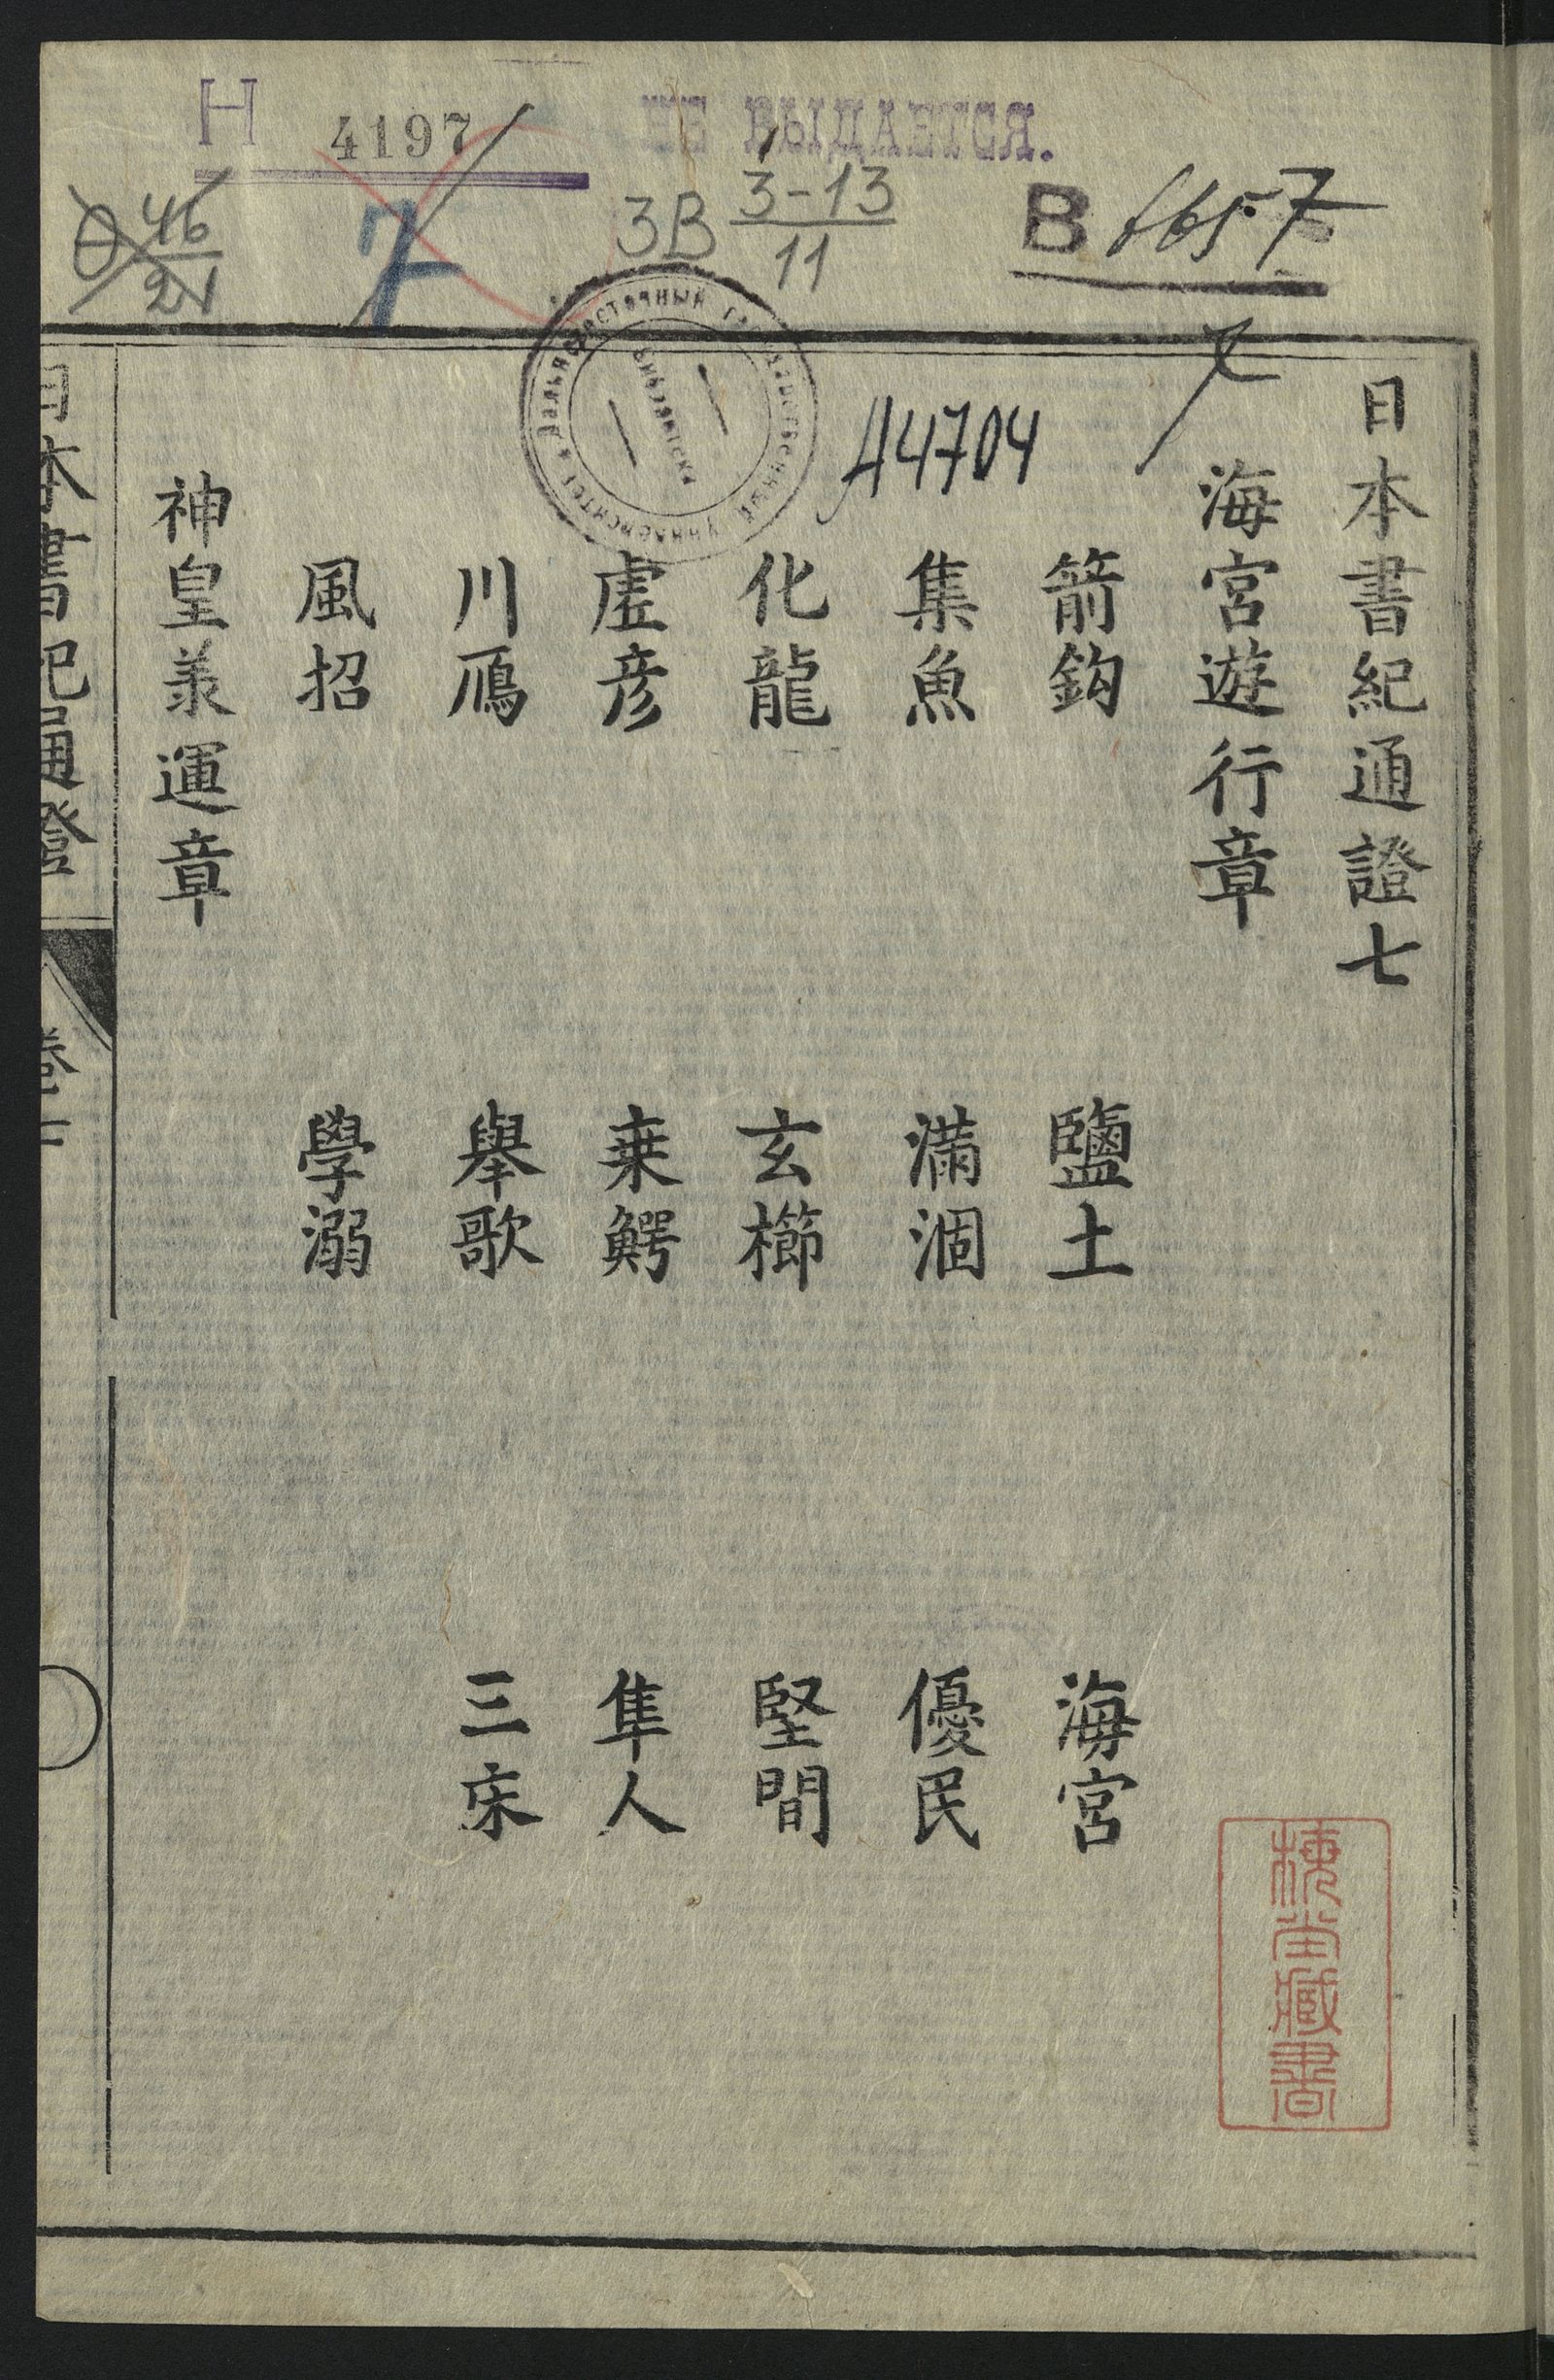 Н 4197
НЕ ВЫДАЕТСЯ.
46
21
7
3В 3-13
11
В
Дальневосточный Государственный Университет
Библиотека
А4704
日本書紀通證七
海宮遊行章
箭鈎 鹽土 海宮
集魚 滿涸 優民
化龍 玄櫛 堅間
虛彦 乗鰐 隼人
川鴈 舉歌 三床
風招 學溺
神皇羕運章
日本書紀通證 卷七
棟堂藏書